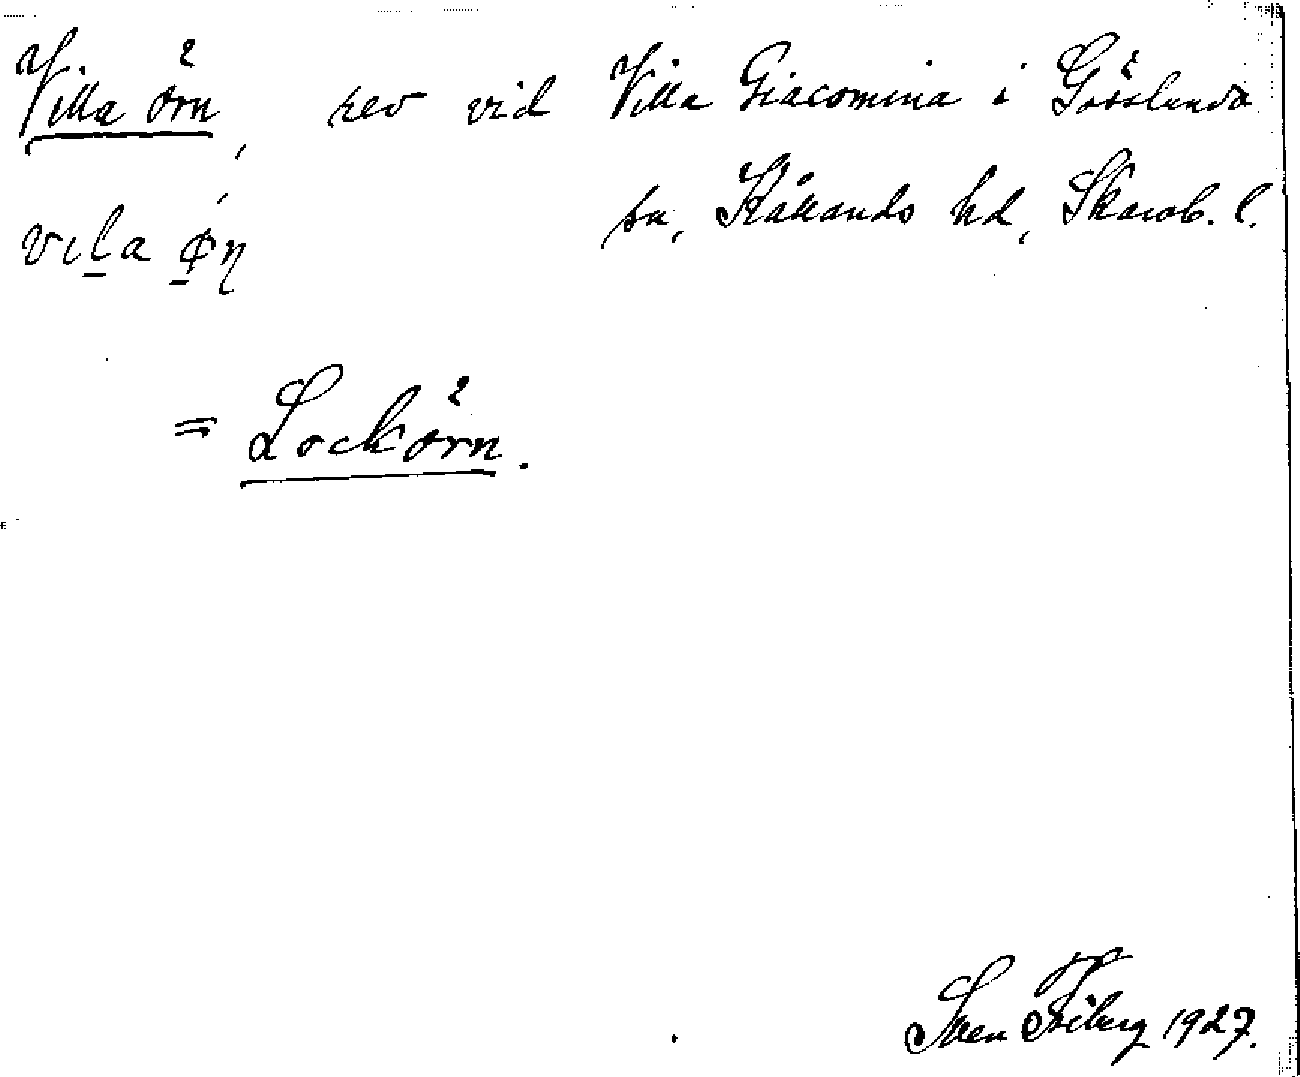 Villa örn, rev vid Villa Giacomina i Gösslunda
sn, Kållands hd, Skarab. l.
= Lockörn.
Sven Friberg 1927.